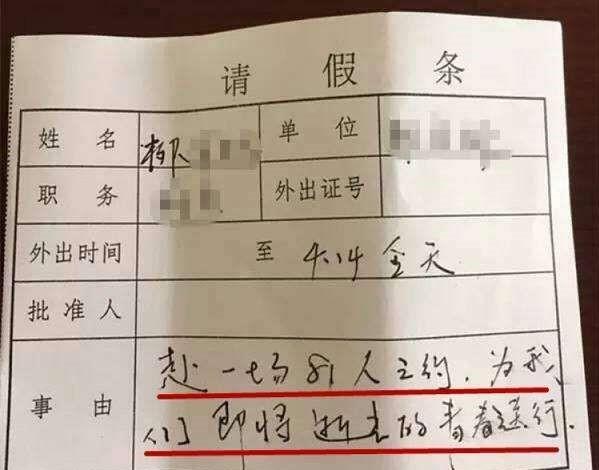 请假条
姓名 柳 单位
职务 外出证号
外出时间 至 4.14 全天
批准人
事由 赴一场 81 人之约，为我
们即将逝去的青春送行.